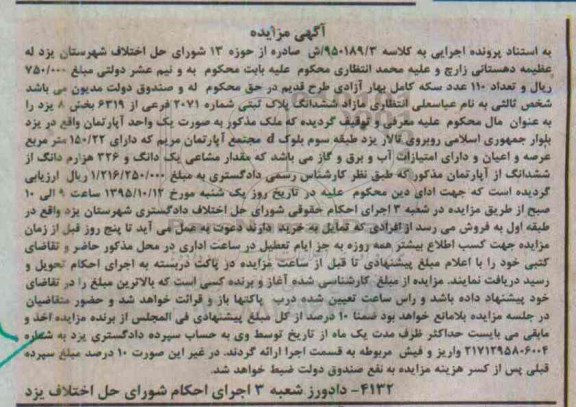 آگهی مزایده
به استناد پرونده اجرایی به کلاسه ۹۵۰۱۸۹/۳/ش صادره از حوزه ۱۳ شورای حل اختلاف شهرستان یزد له
عظیمه دهستانی زارچ و علیه محمد انتظاری محکوم علیه بابت محکوم به و نیم عشر دولتی مبلغ ۷۵۰/۰۰۰
ریال و تعداد ۱۱۰ عدد سکه کامل بهار آزادی طرح قدیم در حق محکوم له و صندوق دولت مدیون می باشد
شخص ثالثی به نام عباسعلی انتظاری مازاد ششدانگ پلاک ثبتی شماره ۲۰۷۱ فرعی از ۶۳۱۹ بخش ۸ یزد را
به عنوان مال محکوم علیه معرفی و توقیف گردیده که ملک مذکور به صورت یک واحد آپارتمان واقع در یزد
بلوار جمهوری اسلامی روبروی تالار یزد طبقه سوم بلوک d مجتمع آپارتمان مریم که دارای ۱۵۰/۲۲ متر مربع
عرصه و اعیان و دارای امتیازات آب و برق و گاز می باشد که مقدار مشاعی یک دانگ و ۳۲۶ هزارم دانگ از
ششدانگ از آپارتمان مذکور که طبق نظر کارشناس رسمی دادگستری به مبلغ ۱/۲۱۶/۲۵۰/۰۰۰ ریال ارزیابی
گردیده است که جهت ادای دین محکوم علیه در تاریخ روز یک شنبه مورخ ۱۳۹۵/۱۰/۱۲ ساعت ۹ الی ۱۰
صبح از طریق مزایده در شعبه ۳ اجرای احکام حقوقی شورای حل اختلاف دادگستری شهرستان یزد واقع در
طبقه اول به فروش می رسد از افرادی که تمایل به خرید دارند دعوت به عمل می آید تا پنج روز قبل از زمان
مزایده جهت کسب اطلاع بیشتر همه روزه به جز ایام تعطیل در ساعت اداری در محل مذکور حاضر و تقاضای
کتبی خود را با اعلام مبلغ پیشنهادی تا قبل از ساعت مزایده در پاکت دربسته به اجرای احکام تحویل و
رسید دریافت نمایند. مزایده از مبلغ کارشناسی شده آغاز و برنده کسی است که بالاترین مبلغ را در تقاضای
خود پیشنهاد داده باشد و راس ساعت تعیین شده درب پاکتها باز و قرائت خواهد شد و حضور متقاضیان
در جلسه مزایده بلامانع خواهد بود ضمنا ۱۰ درصد از کل مبلغ پیشنهادی فی المجلس از برنده مزایده اخذ و
مابقی می بایست حداکثر ظرف مدت یک ماه از تاریخ توسط وی به حساب سپرده دادگستری یزد به شماره
۲۱۷۱۲۹۵۸۰۶۰۰۴ واریز و فیش مربوطه به قسمت اجرا ارائه گردند. در غیر این صورت ۱۰ درصد مبلغ سپرده
قبلی پس از کسر هزینه مزایده به نفع صندوق دولت ضبط خواهد شد.
۴۱۳۲- دادورز شعبه ۳ اجرای احکام شورای حل اختلاف یزد